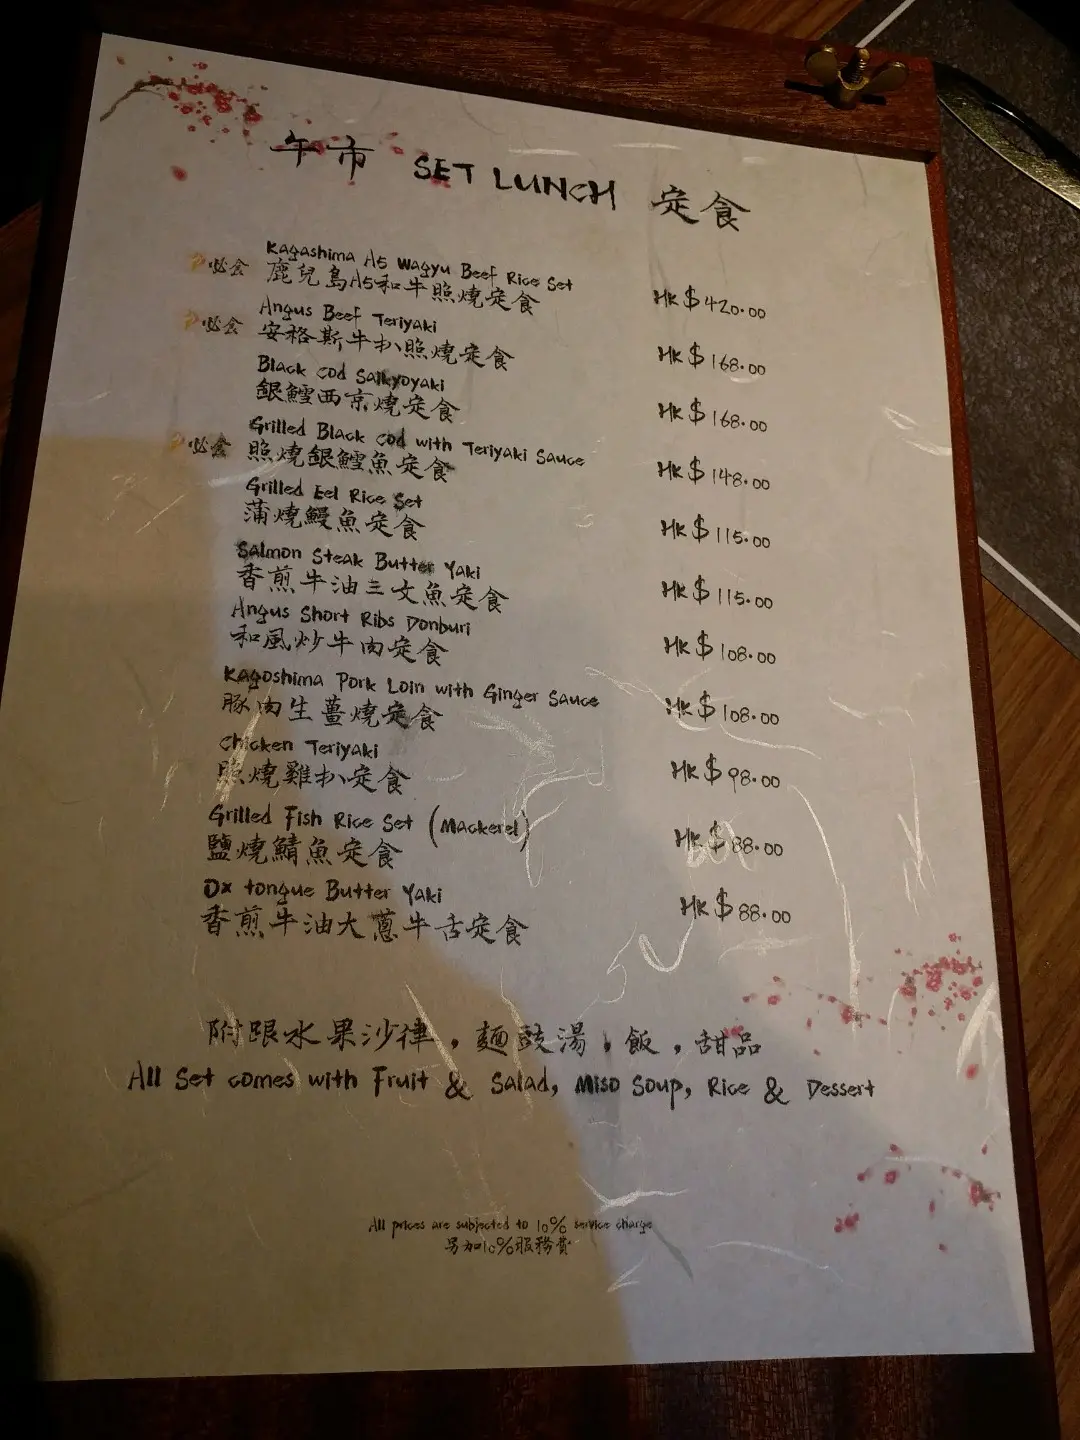 午市 SET LUNCH 定食
Kagashima A5 Wagyu Beef Rice Set
必食 鹿兒島A5和牛照燒定食 HK$420.00
Angus Beef Teriyaki
必食 安格斯牛扒照燒定食 HK$168.00
Black Cod Saikyoyaki
銀鱈西京燒定食 HK$168.00
Grilled Black Cod with Teriyaki Sauce
必食 照燒銀鱈魚定食 HK$148.00
Grilled Eel Rice Set
蒲燒鰻魚定食 HK$115.00
Salmon Steak Butter Yaki
香煎牛油三文魚定食 HK$115.00
Angus Short Ribs Donburi
和風炒牛肉定食 HK$108.00
Kagoshima Pork Loin with Ginger Sauce
豚肉生薑燒定食 HK$108.00
Chicken Teriyaki
照燒雞扒定食 HK$98.00
Grilled Fish Rice Set (Mackerel)
鹽燒鯖魚定食 HK$88.00
Ox tongue Butter Yaki
香煎牛油大蔥牛舌定食 HK$88.00
附跟水果沙律,麵豉湯,飯,甜品
All Set comes with Fruit & Salad, Miso Soup, Rice & Dessert
All prices are subjected to 10% service charge
另加10%服務費